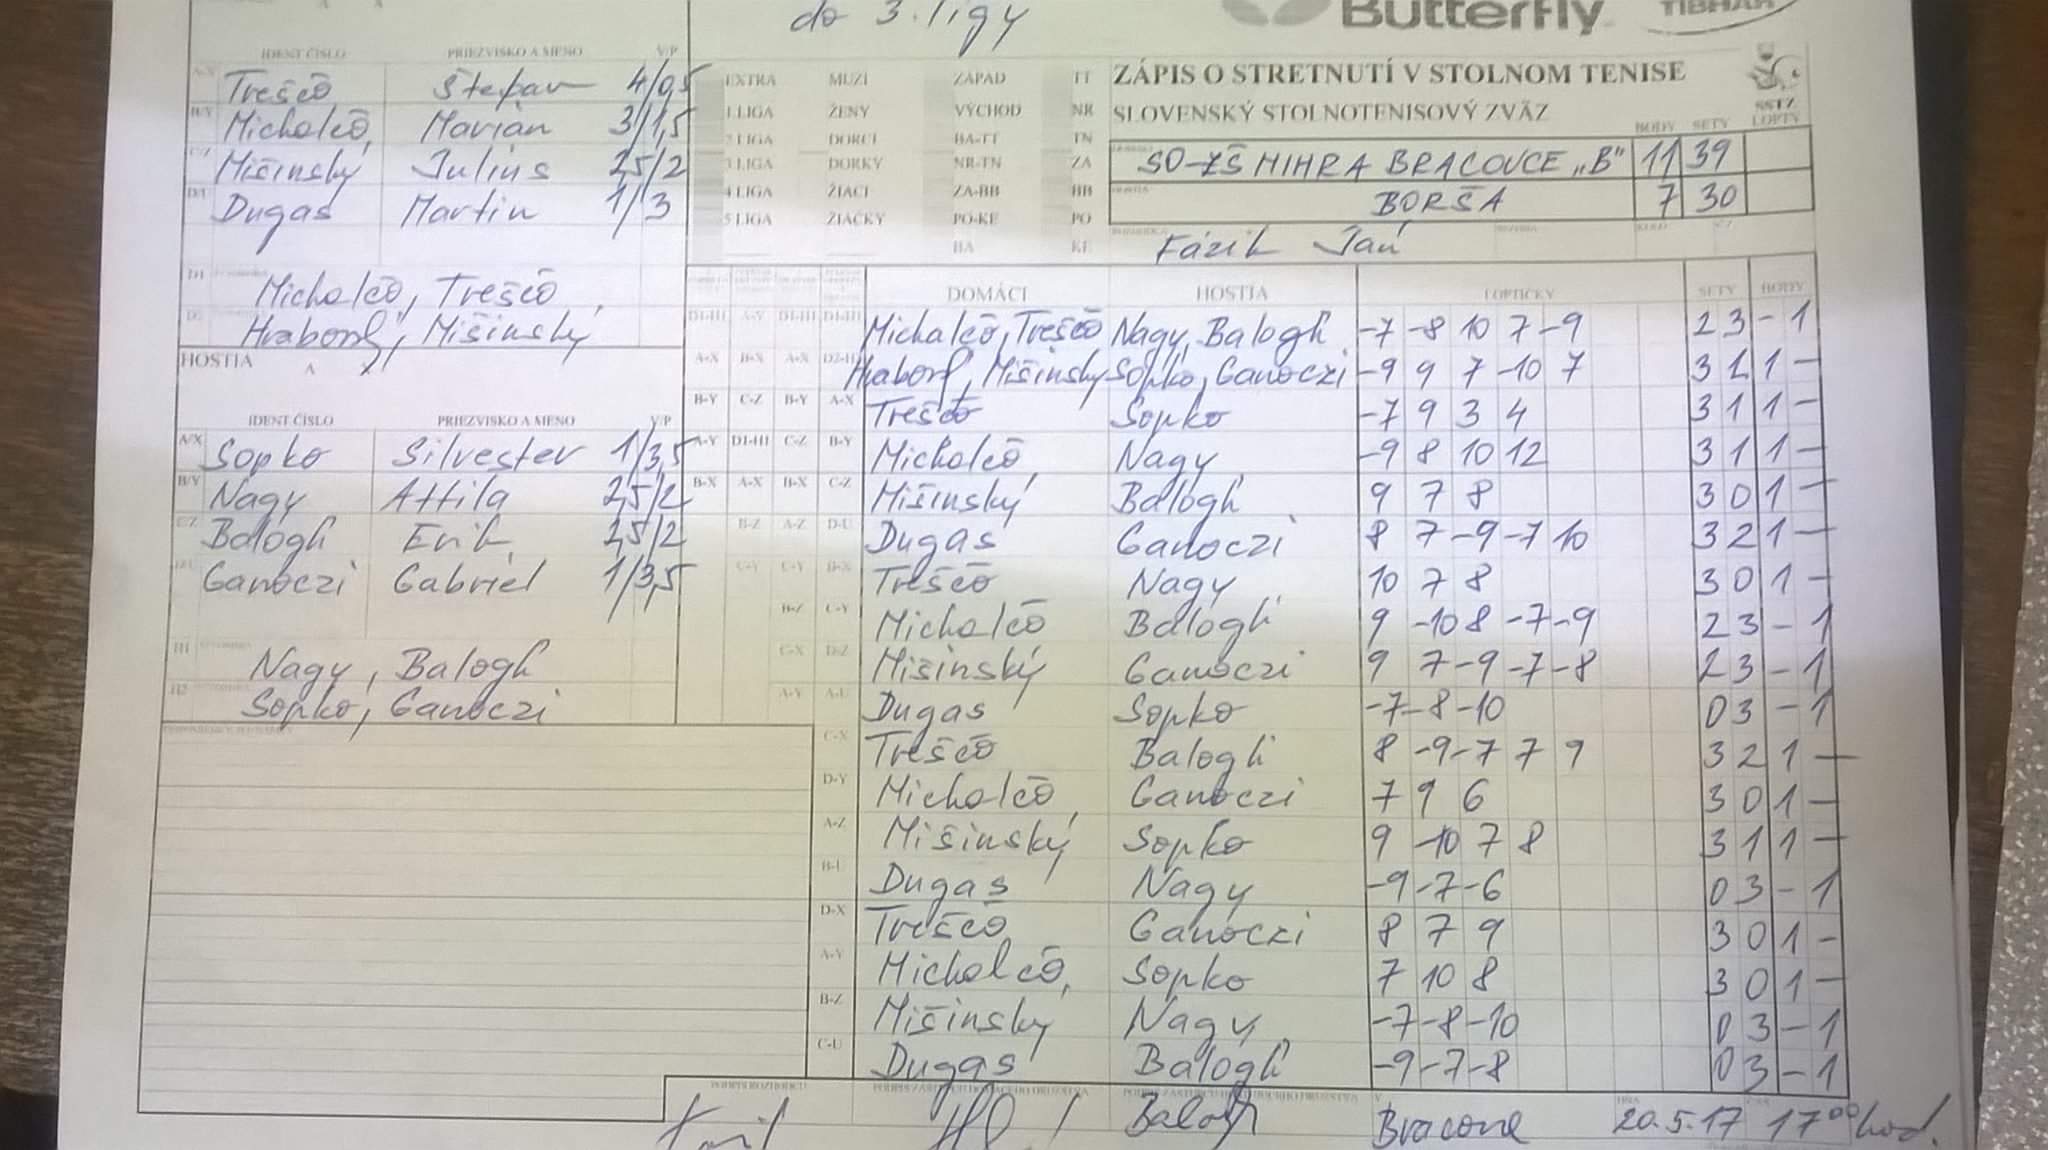 do 3. ligy
Butterfly TIBHAR
IDENT ČÍSLO PRIEZVISKO A MENO V/P
A/X Treščo Štefan 4/0,5
B/Y Michalčo, Marián 3/1,5
C/Z Mišinský Julius 2,5/2
D/U Dugas Martin 1/3
D1 Michalčo, Treščo
D2 Hraborf, Mišinský
HOSTIA A
IDENT ČÍSLO PRIEZVISKO A MENO V/P
A/X Sopko Silvester 1/3,5
B/Y Nagy Attila 2,5/2
C/Z Balogh Erik 2,5/2
D/U Ganoczi Gabriel 1/3,5
H1 Nagy, Balogh
H2 Sopko, Ganoczi
EXTRA MUŽI ZÁPAD TT
1 LIGA ŽENY VÝCHOD NR
2 LIGA DORCI BA-TT TN
3 LIGA DORKY NR-TN ZA
4 LIGA ŽIACI ZA-BB BB
5 LIGA ŽIAČKY PO-KE PO
BA KE
ZÁPIS O STRETNUTÍ V STOLNOM TENISE
SLOVENSKÝ STOLNOTENISOVÝ ZVÄZ
SSTZ
BODY SETY LOPTY
SO-ZŠ MIHRA BRACOVCE „B" 11 39
BORŠA 7 30
Fázik Ján
DOMÁCI HOSTIA LOPTIČKY SETY BODY
D1-H1 A-Y D1-H1 D1-H1 Michalčo, Treščo Nagy, Balogh -7 -8 10 7 -9 2 3 - 1
A-X B-X A-X D2-H2 Hraborf, Mišinský Sopko, Ganoczi -9 9 7 -10 7 3 2 1 -
B-Y C-Z B-Y A-X Treščo Sopko -7 9 3 4 3 1 1 -
A-Y D1-H1 C-Z B-Y Michalčo, Nagy -9 8 10 12 3 1 1 -
B-X A-X B-X C-Z Mišinský Balogh 9 7 8 3 0 1 -
B-Z A-Z D-U Dugas Ganoczi 8 7 -9 -7 10 3 2 1 -
C-Y C-Y B-X Treščo Nagy 10 7 8 3 0 1 -
B-Z C-Y Michalčo Balogh 9 -10 8 -7 -9 2 3 - 1
C-X D-Z Mišinský Ganoczi 9 7 -9 -7 -8 2 3 - 1
A-Y A-U Dugas Sopko -7 -8 -10 0 3 - 1
C-X Treščo Balogh 8 -9 -7 7 9 3 2 1 -
D-Y Michalčo, Ganoczi 7 9 6 3 0 1 -
A-Z Mišinský Sopko 9 -10 7 8 3 1 1 -
B-U Dugas Nagy -9 -7 -6 0 3 - 1
D-X Treščo Ganoczi 8 7 9 3 0 1 -
A-Y Michalčo, Sopko 7 10 8 3 0 1 -
B-Z Mišinský Nagy -7 -8 -10 0 3 - 1
C-U Dugas Balogh -9 -7 -8 0 3 - 1
PODPIS ROZHODCU
Balogh Bracovce 20.5.17 17⁰⁰ hod.